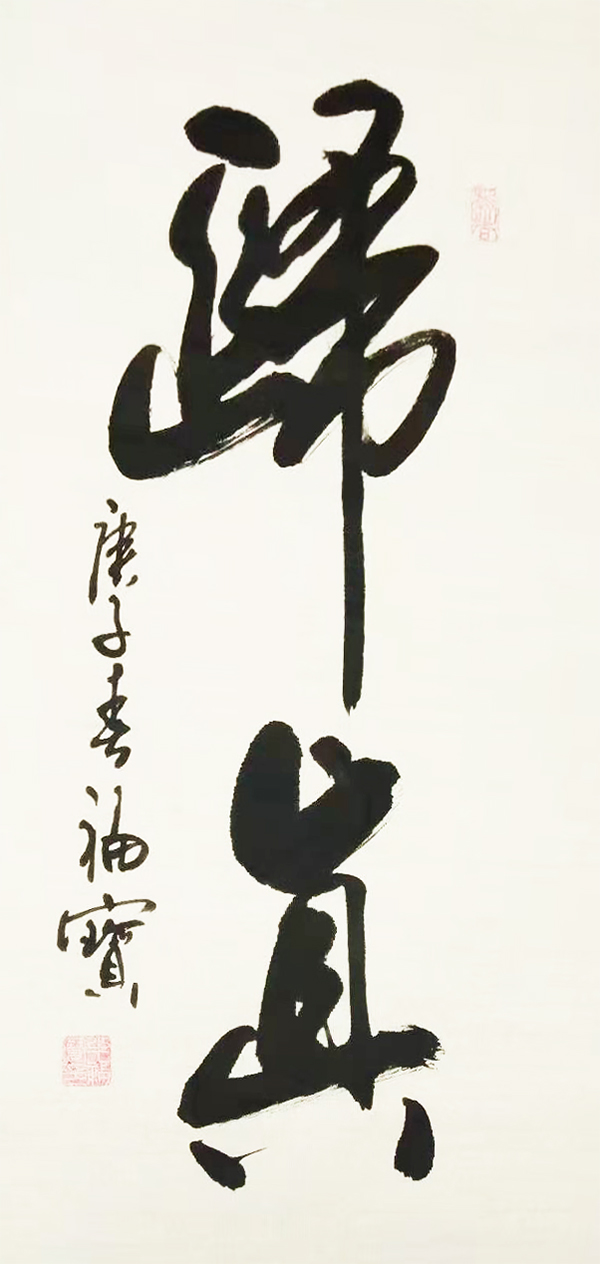 歸真
庚子春福寶